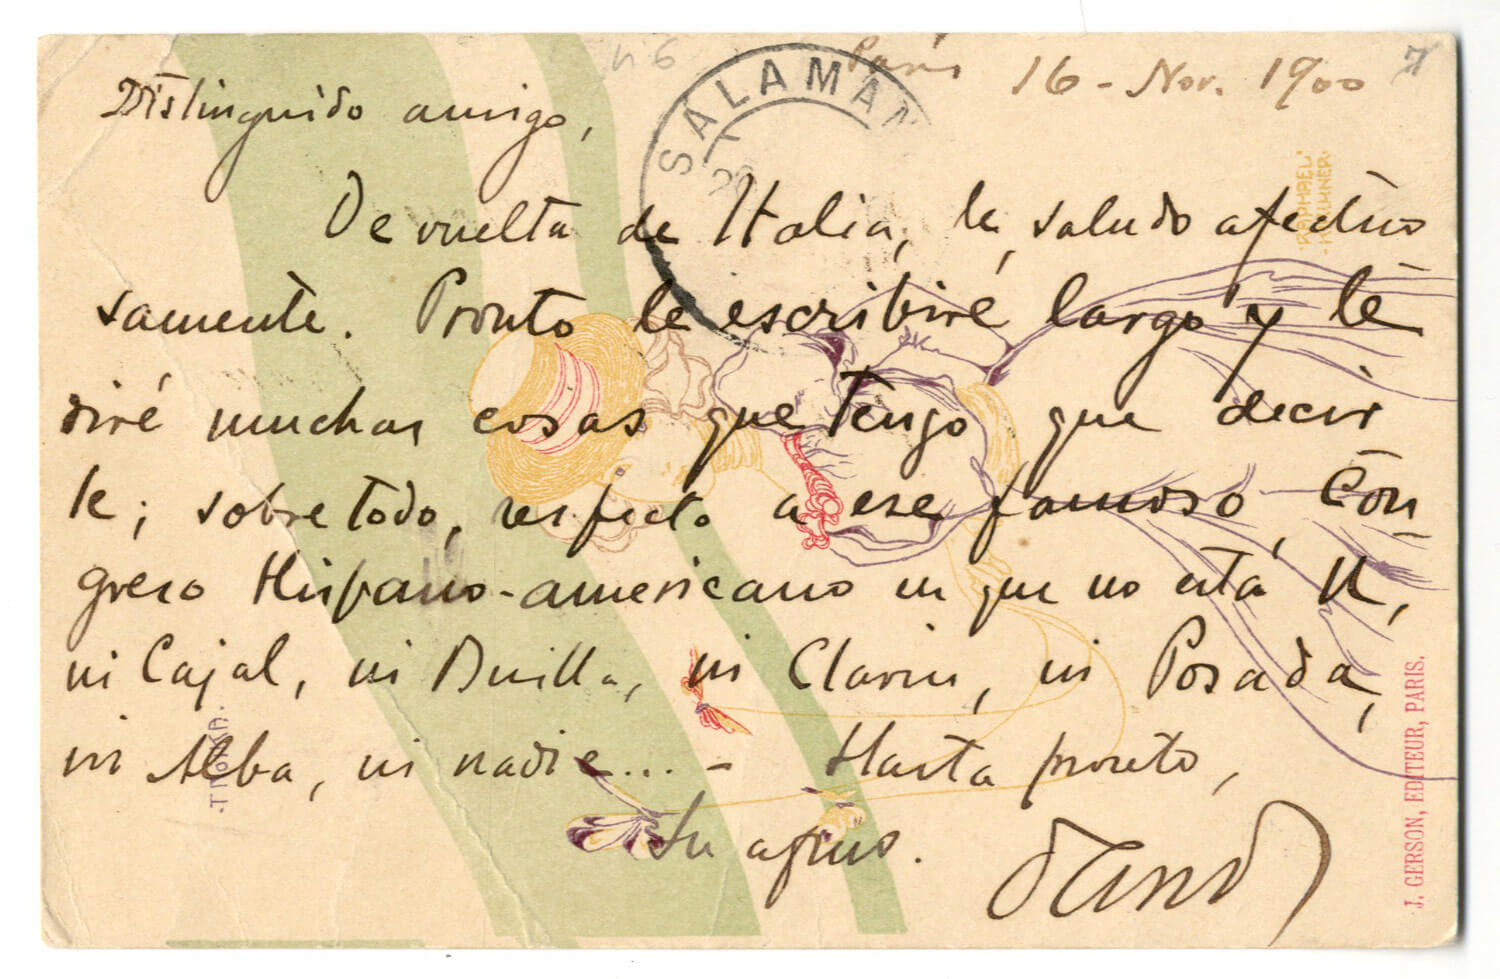 París 16 - Nov. 1900
7
46
SALAMAN
Distinguido amigo,
De vuelta de Italia, le saludo afectuo
samente. Pronto le escribiré largo y le
diré muchas cosas que tengo que decir
le; sobre todo, respecto a ese famoso Con-
greso Hispano-americano en que no está U,
ni Cajal, ni Buylla, ni Clarin, ni Posada,
ni Alba, ni nadie... - Hasta pronto,
Su afmo.
RAPHAEL
KIRCHNER
J. GERSON, EDITEUR, PARIS.